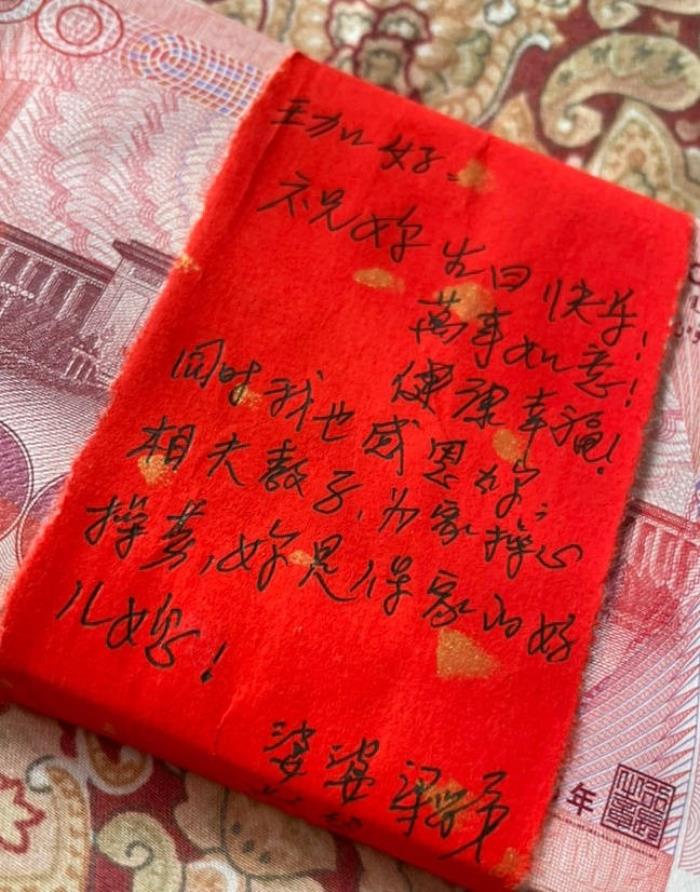 好：
祝妳生日快乐！
萬事如意！
健康幸福！
同时我也感恩妳；
相夫教子，为家操心
操劳，妳是保家的好
儿媳！
婆婆 梁
年